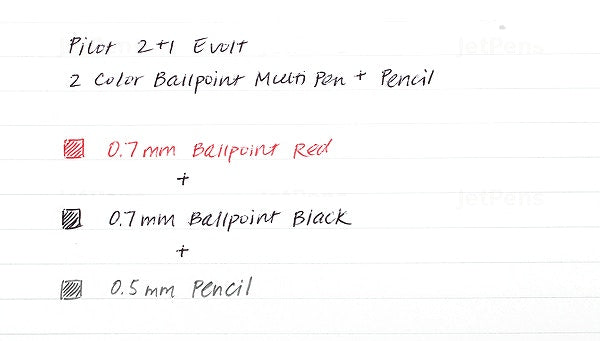 Pilot 2+1 Evolt
2 Color Ballpoint Multi Pen + Pencil
JetPens
0.7 mm Ballpoint Red
+
JetPens
0.7 mm Ballpoint Black
+
0.5 mm Pencil